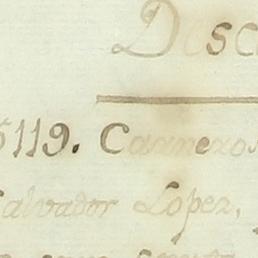 Desc
5119. Carneros
Salvador Lopez,